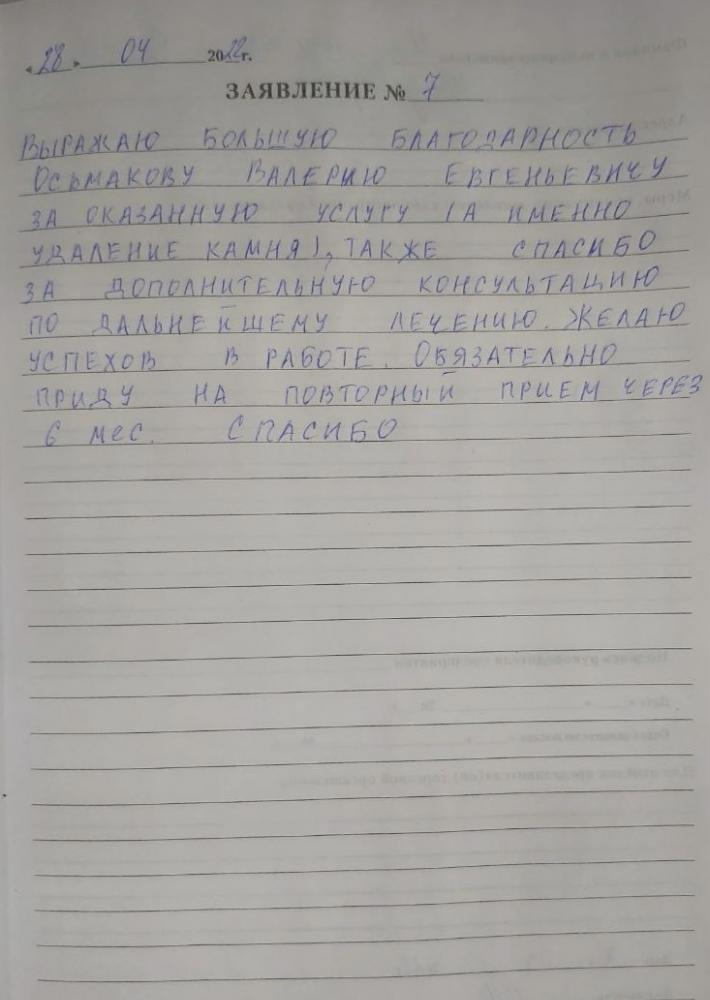 « 28 » 04 2022г.
ЗАЯВЛЕНИЕ № 7
ВЫРАЖАЮ БОЛЬШУЮ БЛАГОДАРНОСТЬ
ОСЬМАКОВУ ВАЛЕРИЮ ЕВГЕНЬЕВИЧУ
ЗА ОКАЗАННУЮ УСЛУГУ (А ИМЕННО
УДАЛЕНИЕ КАМНЯ), ТАКЖЕ СПАСИБО
ЗА ДОПОЛНИТЕЛЬНУЮ КОНСУЛЬТАЦИЮ
ПО ДАЛЬНЕЙШЕМУ ЛЕЧЕНИЮ. ЖЕЛАЮ
УСПЕХОВ В РАБОТЕ. ОБЯЗАТЕЛЬНО
ПРИДУ НА ПОВТОРНЫЙ ПРИЕМ ЧЕРЕЗ
6 мес. СПАСИБО